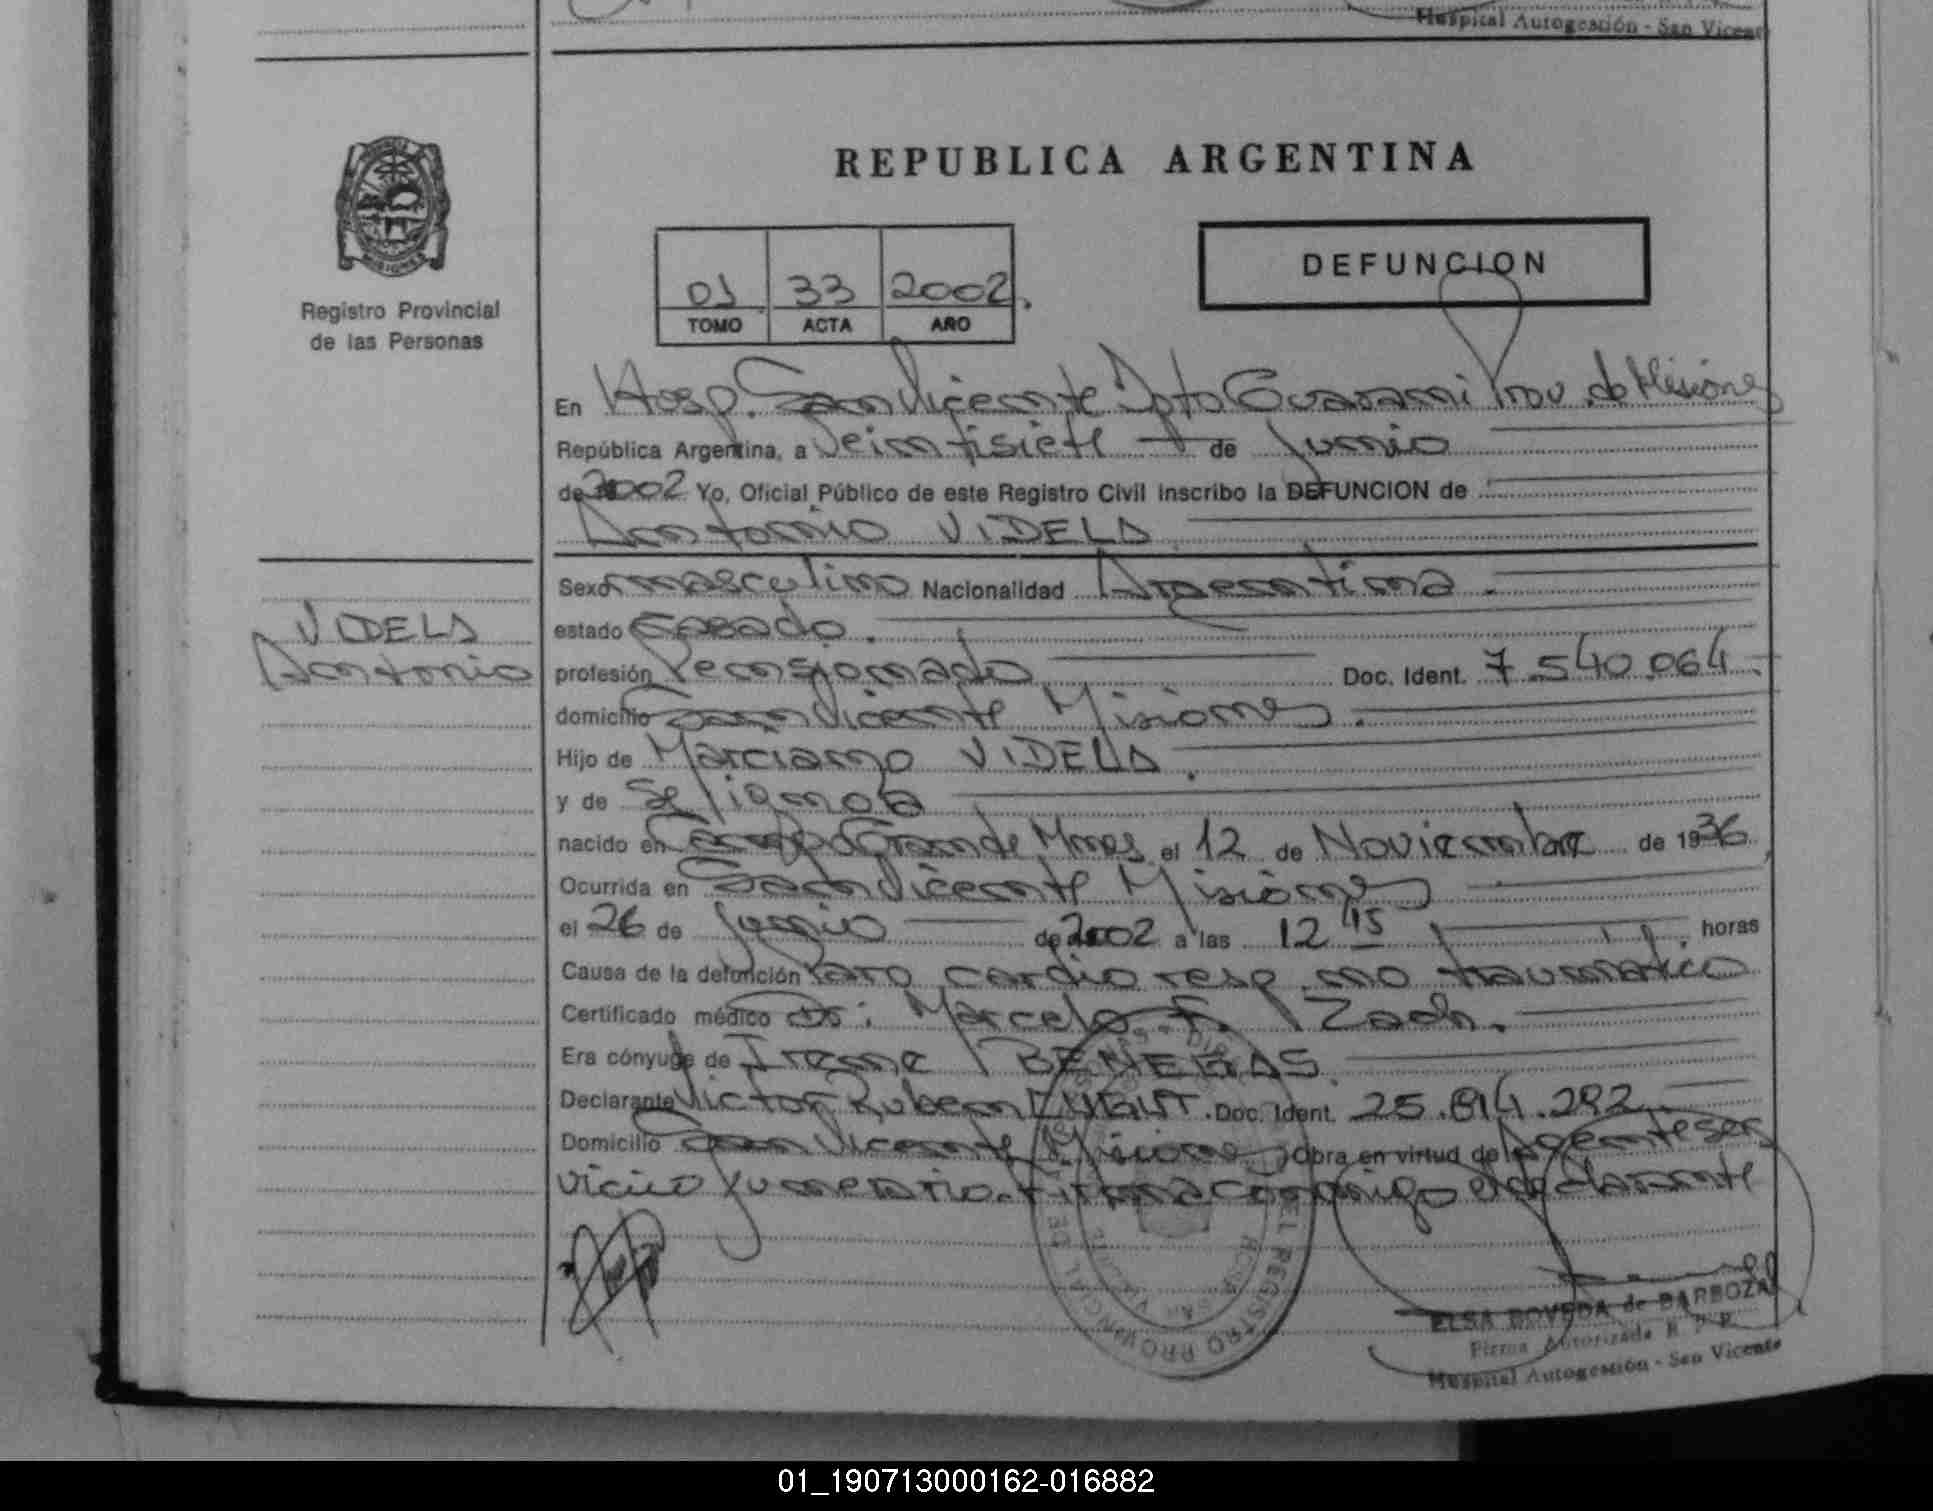 Hospital Autogestión - San Vicente
REPUBLICA ARGENTINA
MISIONES
Registro Provincial
de las Personas
01 33 2002.
TOMO ACTA AÑO
DEFUNCION
En Hosp. San Vicente Dpto Guarani Prov. de Misiones
República Argentina, a Veintisiete de Junio
de 2002 Yo, Oficial Público de este Registro Civil inscribo la DEFUNCION de
Antonio VIDELA
VIDELA
Antonio
Sexo masculino Nacionalidad Argentina.
estado Casado.
profesión Pensionado Doc. Ident. 7.540.064
domicilio San Vicente Misiones.
Hijo de Marciano VIDELA.
y de Se ignora
nacido en Campo Grande Mnes el 12 de Noviembre de 1936
Ocurrida en San Vicente Misiones
el 26 de Junio de 2002 a las 12 15 horas
Causa de la defunción Paro cardio resp. no traumatico
Certificado médico Dr: Marcelo F. Zach.
Era cónyuge de Irene BENEGAS.
Declarante Victor Ruben Doc. Ident. 25.814.292
Domicilio San Vicente Misiones Obra en virtud de Agente ser
vicio funerario. Firma conmigo el declarante
REGISTRO PROVINCIAL DE
ELSA BOVEDA de BARBOZA
Firma Autorizada R. P. P.
Hospital Autogestión - San Vicente
01_190713000162-016882